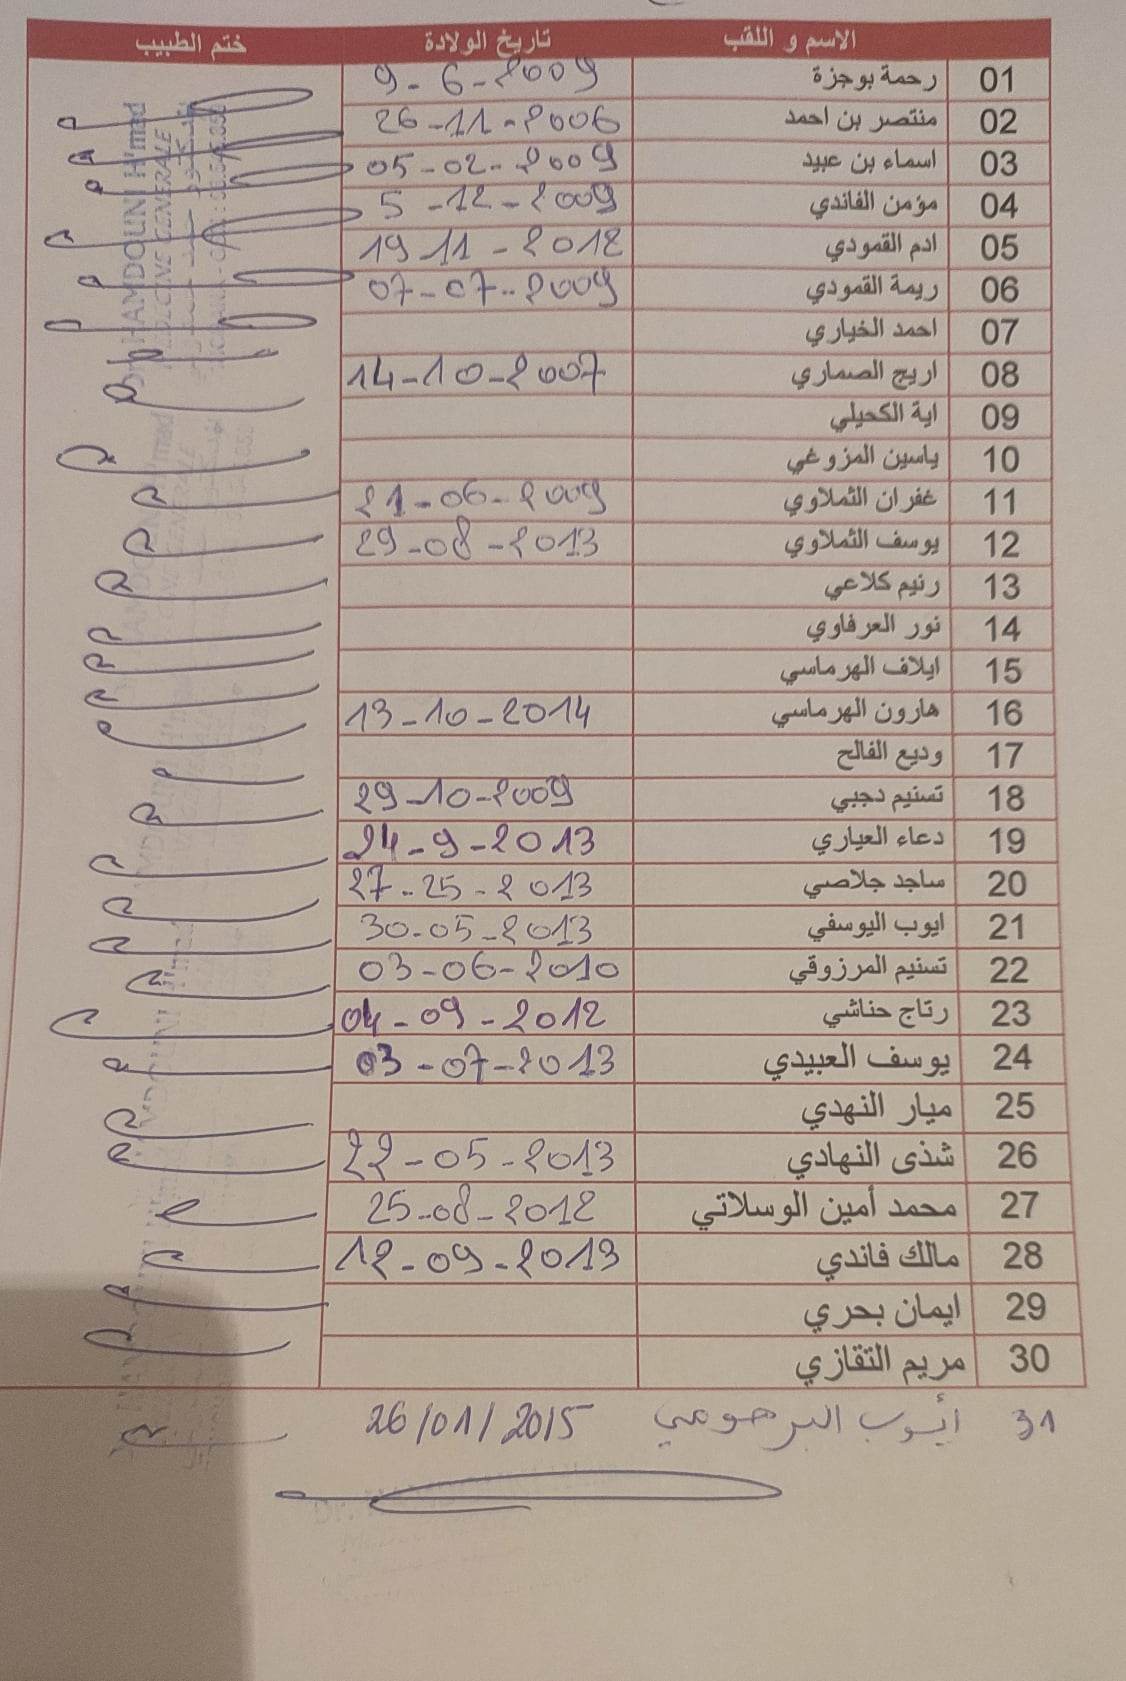 الاسم و اللقب تاريخ الولادة ختم الطبيب
01 رحمة بوجزة 9-6-2009
02 منتصر بن احمد 26-11-2006
03 اسماء بن عبيد 05-02-2009
04 مؤمن الفاندي 5-12-2009
05 ادم القمودي 19 11-2012
06 ريمة القمودي 07-07-2009
07 احمد الخياري
08 اريج الصماري 14-10-2007
09 اية الكحيلي
10 ياسين المزوغي
11 غفران الثملاوي 21-06-2009
12 يوسف الثملاوي 29-08-2013
13 رنيم كلاعي
14 نور العرفاوي
15 ايلاف الهرماسي
16 هارون الهرماسي 13-10-2014
17 وديع الفالح
18 تسنيم دجبي 29-10-2009
19 دعاء العياري 24-9-2013
20 ساجد جلاصي 27-25-2013
21 ايوب اليوسفي 30-05-2013
22 تسنيم المرزوقي 03-06-2010
23 رتاج حناشي 04-09-2012
24 يوسف العبيدي 03-07-2013
25 ميار النهدي
26 شذى النهادي 22-05-2013
27 محمد أمين الوسلاتي 25-08-2012
28 مالك فاندي 12-09-2013
29 ايمان بحري
30 مريم التقازي
31 أيوب البرحومي 26/01/2015
HAMDOUNI H'med